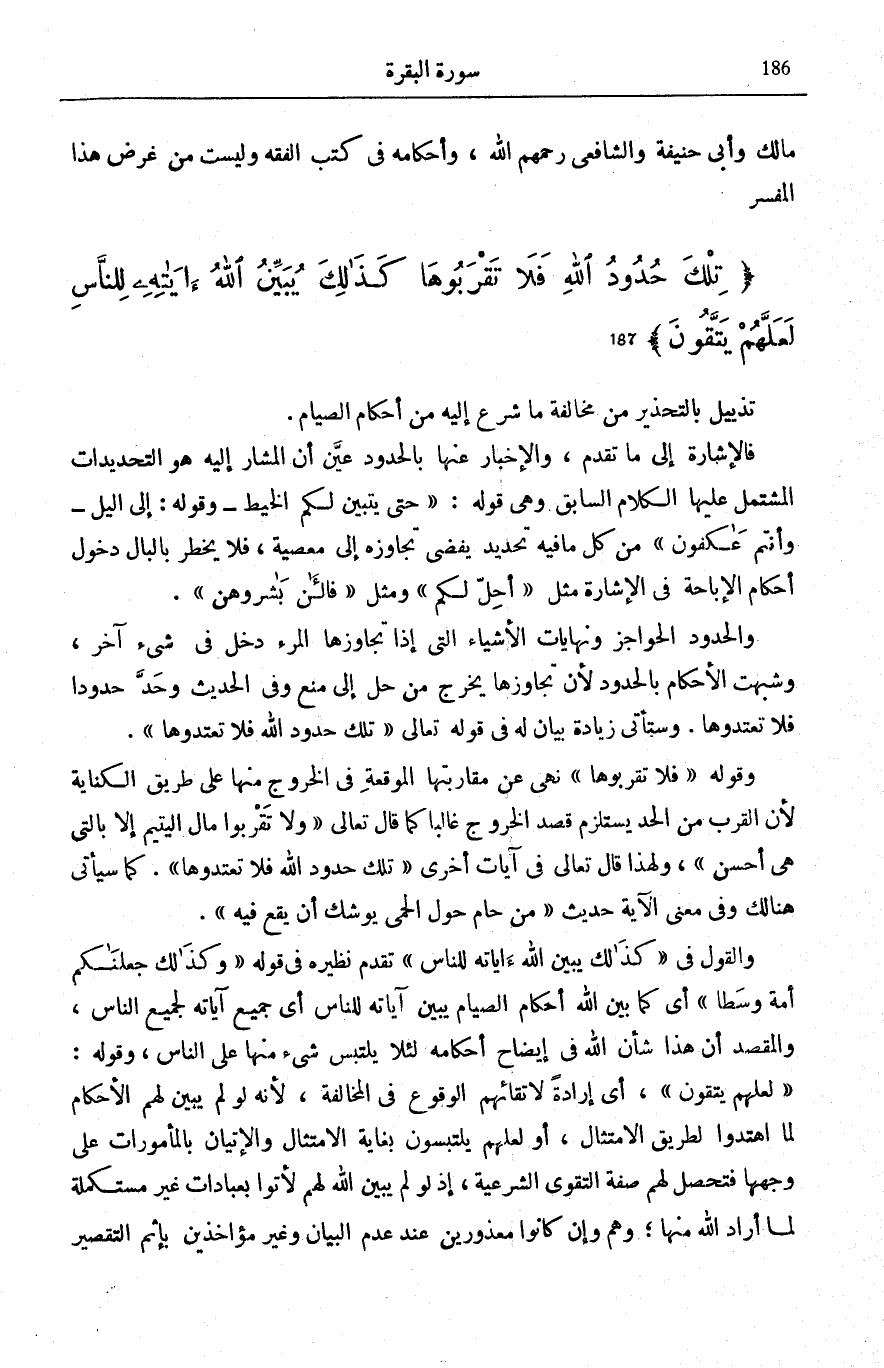 186
سورة البقرة
مالك وأبى حنيفة والشافعى رحمهم الله ، وأحكامه فى كتب الفقه وليست من غرض هذا
المفسر
﴿ تِلْكَ حُدُودُ ٱللَّهِ فَلَا تَقْرَبُوهَا كَذَٰلِكَ يُبَيِّنُ ٱللَّهُ ءَايَٰتِهِۦ لِلنَّاسِ
لَعَلَّهُمْ يَتَّقُونَ ﴾ 187
تذييل بالتحذير من مخالفة ما شرع إليه من أحكام الصيام .
فالإشارة إلى ما تقدم ، والإخبار عنها بالحدود عيَّن أن المشار إليه هو التحديدات
المشتمل عليها الكلام السابق وهى قوله : « حتى يتبين لكم الخيط ــ وقوله : إلى اليل ــ
وأنتم عَٰكفون » من كل مافيه تحديد يفضى تجاوزه إلى معصية ، فلا يخطر بالبال دخول
أحكام الإباحة فى الإشارة مثل « أحِلّ لكم » ومثل « فالـَٰٔن بَٰشروهن » .
والحدود الحواجز ونهايات الأشياء التى إذا تجاوزها المرء دخل فى شىء آخر ،
وشبهت الأحكام بالحدود لأن تجاوزها يخرج من حل إلى منع وفى الحديث وحَدَّ حدودا
فلا تعتدوها . وستأتى زيادة بيان له فى قوله تعالى « تلك حدود الله فلا تعتدوها » .
وقوله « فلا تقربوها » نهى عن مقاربتها الموقعةِ فى الخروج منها على طريق الكناية
لأن القرب من الحد يستلزم قصد الخروج غالبا كما قال تعالى « ولا تَقْربوا مال اليتيم إلا بالتى
هى أحسن » ، ولهذا قال تعالى فى آيات أخرى « تلك حدود الله فلا تعتدوها» . كما سيأتى
هنالك وفى معنى الآية حديث « من حام حول الحمى يوشك أن يقع فيه » .
والقول فى « كذَٰلك يبين الله ءاياته للناس » تقدم نظيره فى قوله « وكذَٰلك جعلنَٰكم
أمة وسَطا » أى كما بين الله أحكام الصيام يبين آياته للناس أى جميع آياته لجميع الناس ،
والمقصد أن هذا شأن الله فى إيضاح أحكامه لئلا يلتبس شىء منها على الناس ، وقوله :
« لعلهم يتقون » ، أى إرادةً لاتقائهم الوقوع فى المخالفة ، لأنه لو لم يبين لهم الأحكام
لما اهتدوا لطريق الامتثال ، أو لعلهم يلتبسون بغاية الامتثال والإتيان بالمأمورات على
وجهها فتحصل لهم صفة التقوى الشرعية ، إذ لو لم يبين الله لهم لأتوا بعبادات غير مستكملة
لما أراد الله منها ؛ وهم وإن كانوا معذورين عند عدم البيان وغير مؤاخذين بإثم التقصير